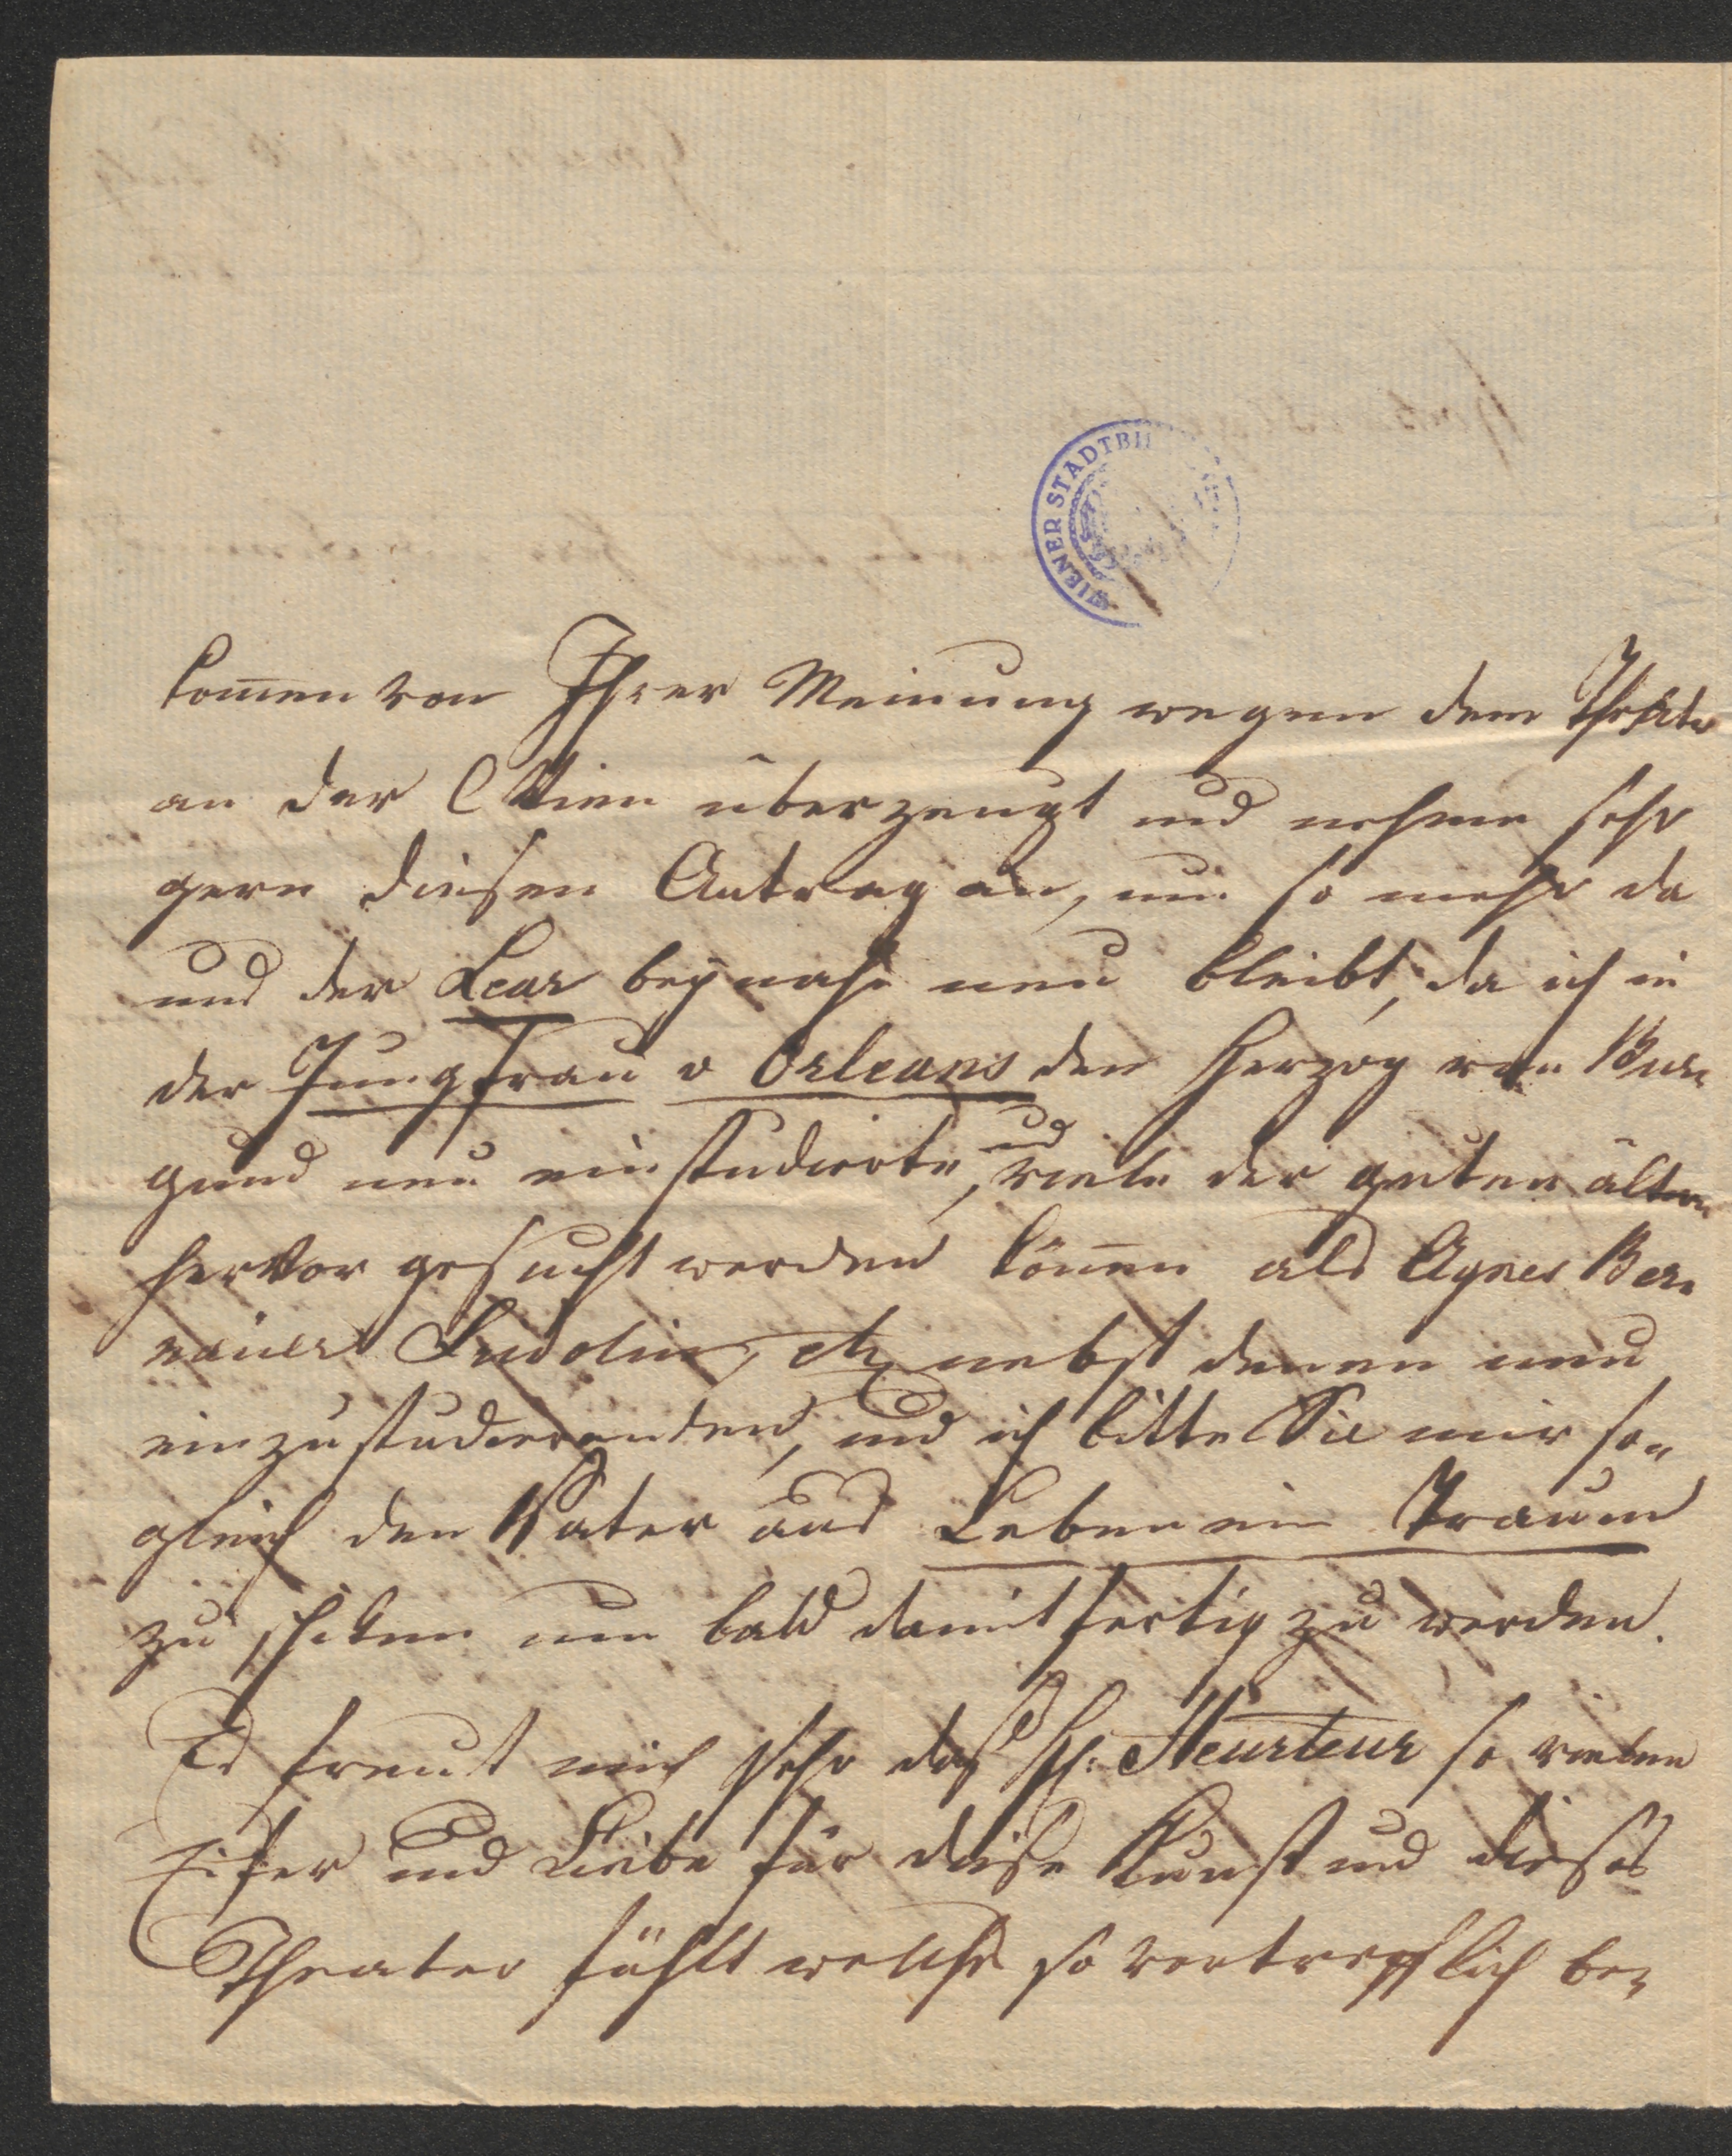 WIENER STADTBI
komen von Ihrer Meinung wegen dem Theater
an der Wien überzeugt und nehme sehr
gern diesen Antrag an, um so mehr da
uns der Lear beynahe neu bleibt, da ich in
der Jungfrau v Orleans den Herzog von Bur-
gund neu einstudierte, und viele der guten ältern
hervor gesucht werden können als Agnes Ber-
nauer Fridolin, etz nebst denen neu
einzustudierenden, und ich bitte Sie mir so-
gleich den Vater aus Leben ein Traum
zu schiken um bald damit fertig zu werden.
Es freut mich sehr daß H: Heurteur so vielen
Eifer und Liebe für diese Kunst und dieses
Theater fühlt welche so vortrefflich be-